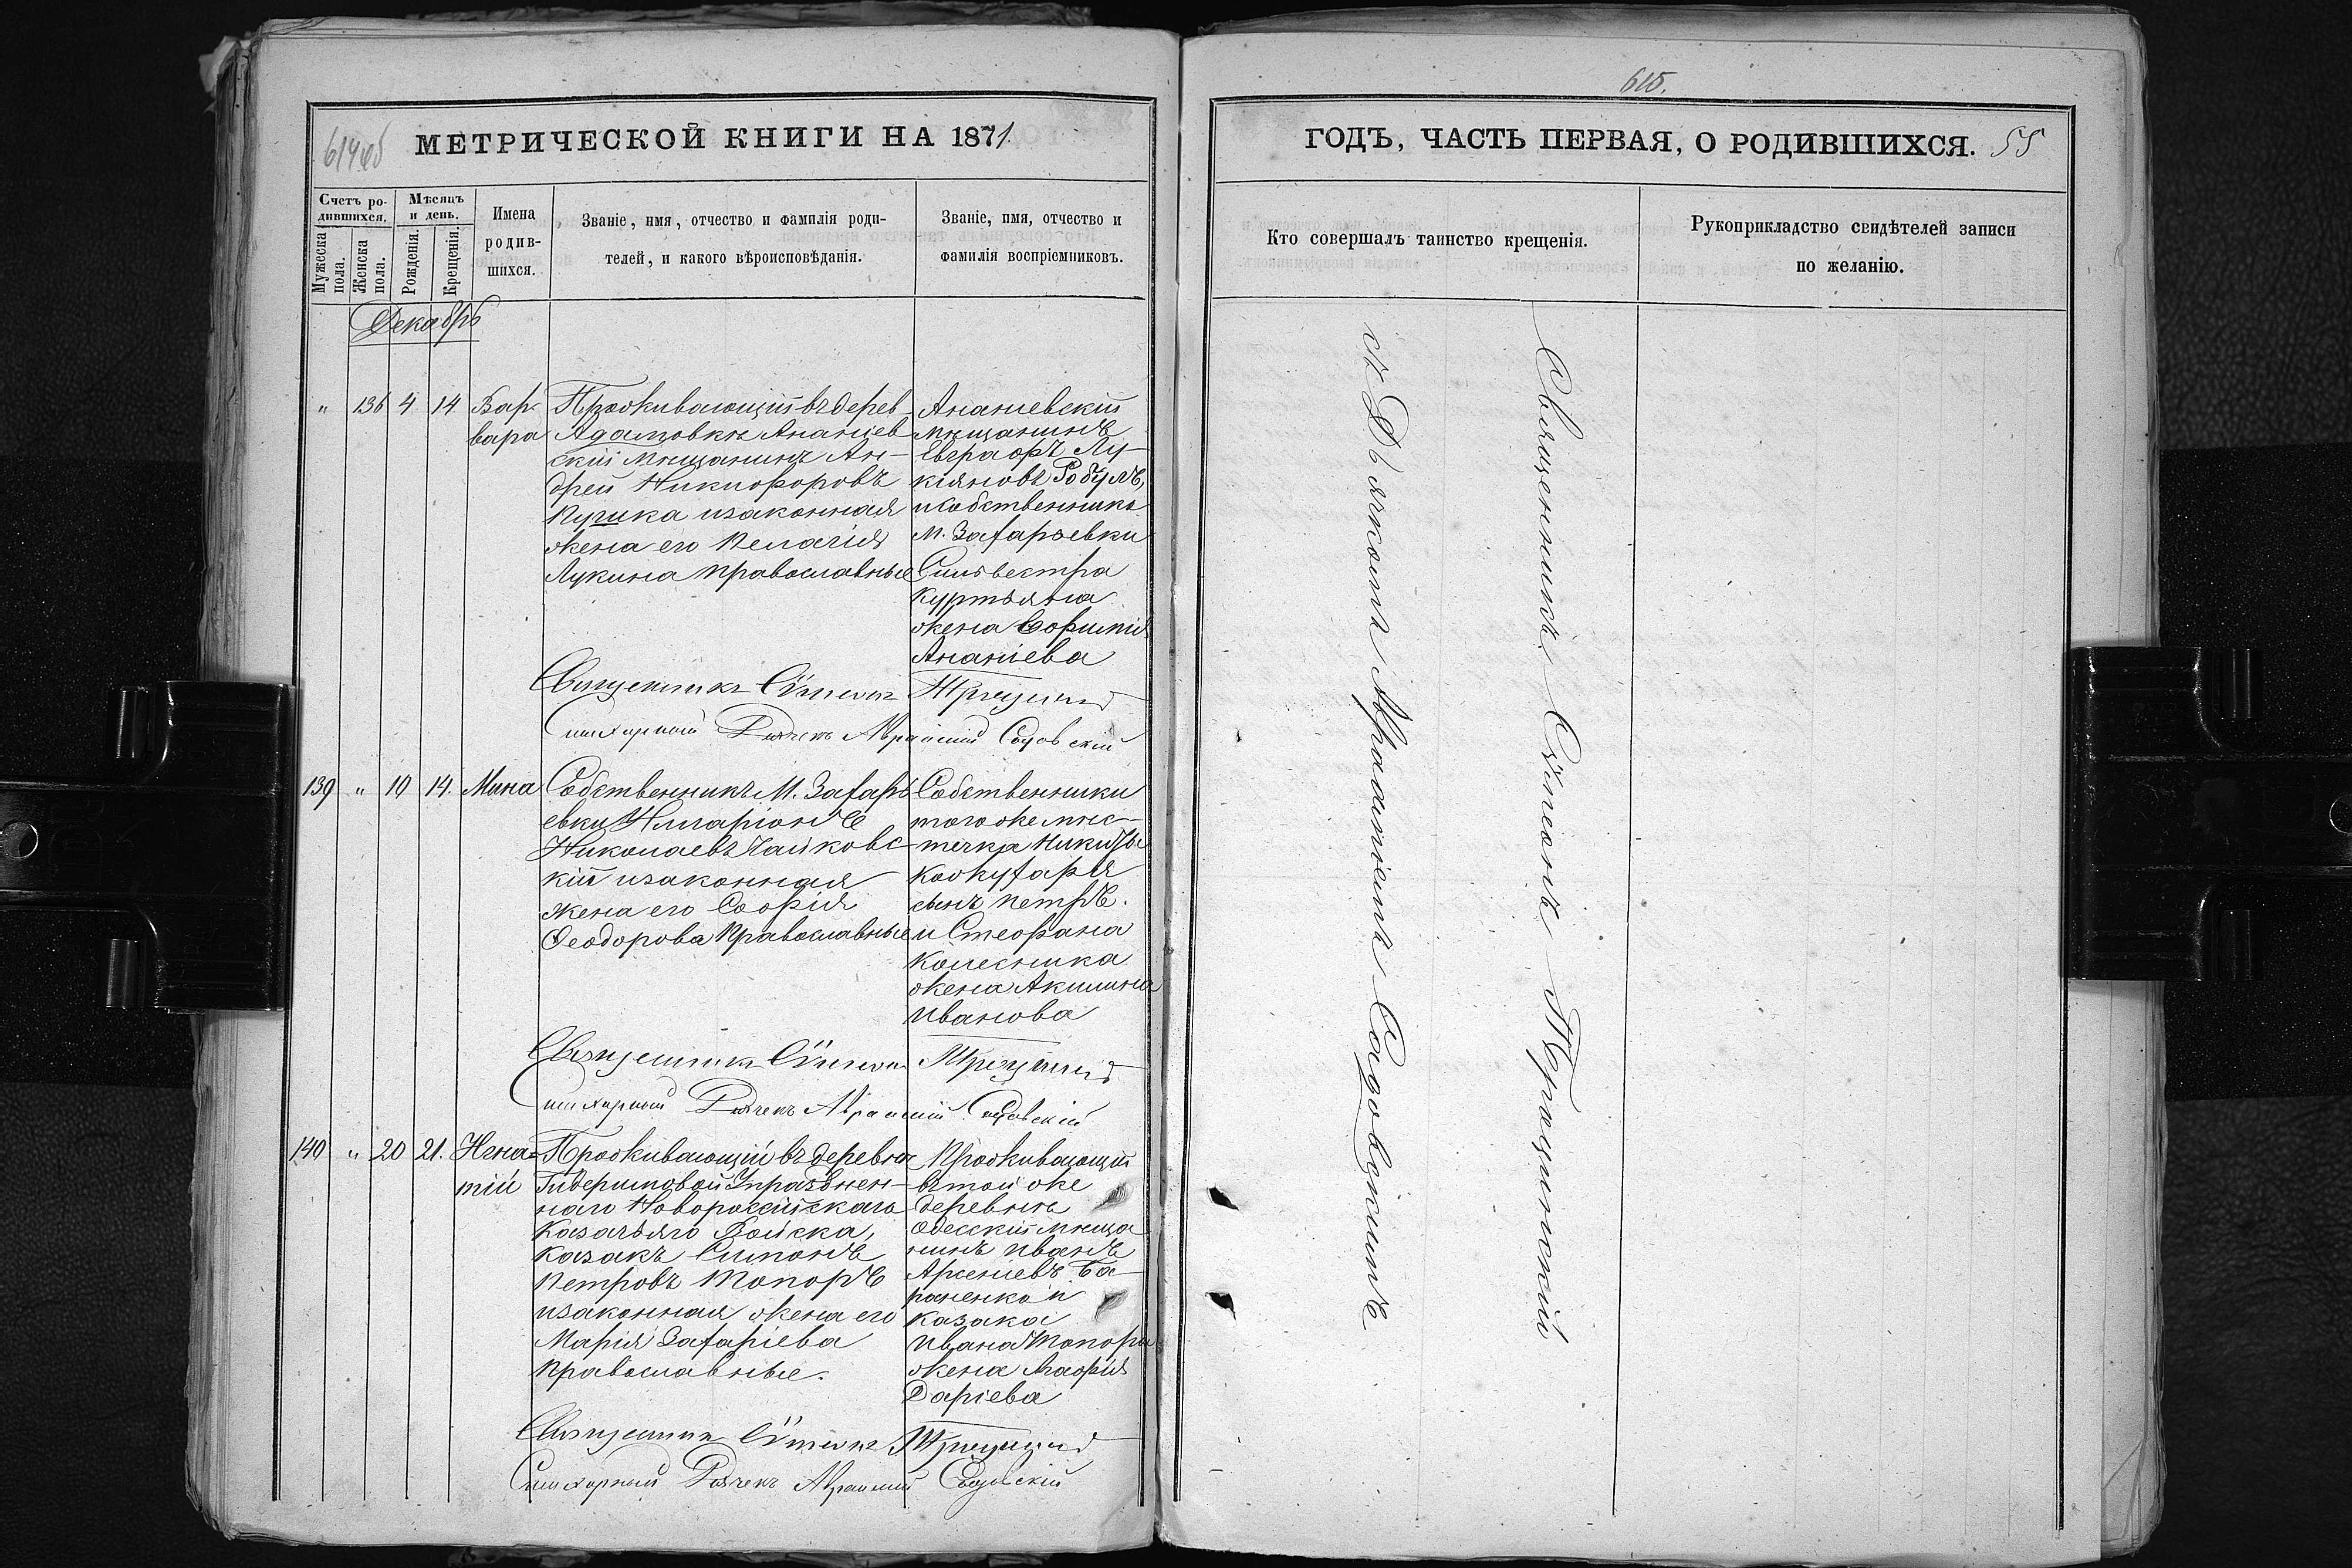 614 об
МЕТРИЧЕСКОЙ КНИГИ НА 1871.
Счетъ ро-
дившихся.
Мѣсяцъ
и день.
Мужеска
пола.
Женска
пола.
Рожденія.
Крещенія.
Имена
родив-
шихся.
Званіе, имя, отчество и фамилія роди-
телей, и какого вѣроисповѣданія.
Званіе, имя, отчество и
фамилія воспріемниковъ.
Декабрь
" 136 4 14
Вар-
вара
Проживающій въ дерев
Адамовкѣ Ананіев
скій мѣщанинъ Ан-
дрей Никифоровъ
изаконная
жена его Пелагія
Лукина православные
Ананіевскій
мѣщанинъ
Евграфъ Лу-
кіяновъ Робулъ,
исобственника
М. Захарьевки
Сильвестра
Куртьяна
жена
Ананіева
Священникъ Сѵмеонъ
Стихарный Дьячекъ Авраамій Садовскій
139 " 10 14.
Мина
Собственникъ М. Захарь
евки Илларіонъ
Николаевъ Чайковс-
кій изаконная
жена его Софія
Ѳеодорова Православные
Собственники
тогоже мѣс-
течка Никиты
Кожухаря
сынъ Петръ.
и Стефана
Колесника
жена Акилина
Иванова
Священникъ Сѵмеонъ
Стихарный Дьячекъ Авраамій Садовскій
140 " 20 21.
Игна-
тій
Проживающій въ деревнѣ
Гидеримовой Упразднен-
наго Новороссійскаго
Казачьяго Войска,
казакъ Симонъ
Петровъ Топоръ
изаконная жена его
Марія Захаріева
Православные.
Проживающій
втой же
деревнѣ
Одесскій мѣща
нинъ Иванъ
Арсеніевъ Ба-
раненко и
казака
Ивана Топора
жена Агафія
Даріева
Священникъ Сѵмеонъ
Стихарный Дьячекъ Авраамій Садовскій
615.
ГОДЪ, ЧАСТЬ ПЕРВАЯ, О РОДИВШИХСЯ. 55
Кто совершалъ таинство крещенія.
Рукоприкладство свидѣтелей записи
по желанію.
Священникъ Сѵмеонъ
съ Дьячкомъ Авраамiемъ Садовскимъ